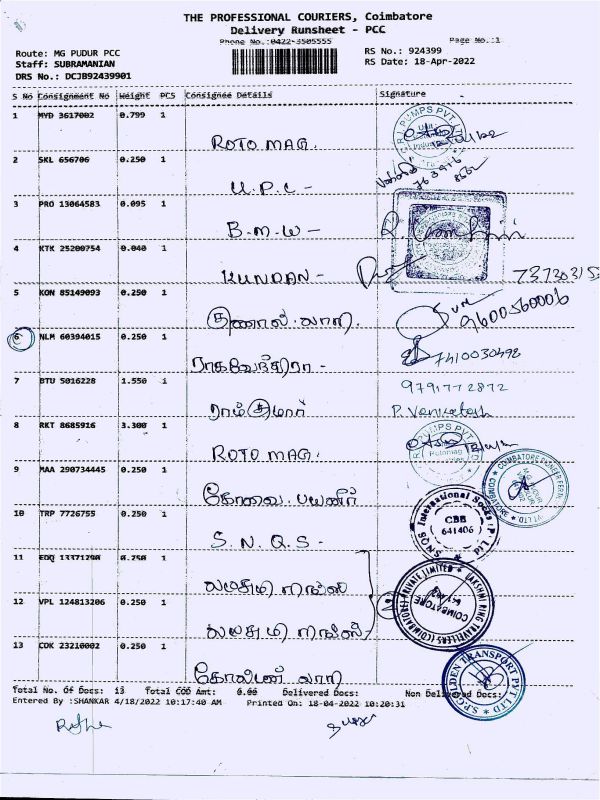 THE PROFESSIONAL COURIERS, Coimbatore
Delivery Runsheet - PCC
Phone No.:0422-3505555 Page No.:1
Route: MG PUDUR PCC RS No.: 924399
Staff: SUBRAMANIAN RS Date: 18-Apr-2022
DRS No.: DCJB92439901
S No Consignment No Weight PCS Consignee Details Signature
1 MYD 3617002 0.799 1
ROTO MAG.
2 SKL 656706 0.250 1
U.P.C -
3 PRO 13064583 0.095 1
B.M.W -
4 KTK 25200754 0.040 1
KUNDAN -
5 KON 85149093 0.250 1
குணால். லாரி.
9600560006
6 NLM 60394015 0.250 1
ராகவேந்திரா - 7410030498
7 BTU 5016228 1.550 1 9791772872
ராம்குமார் P. Venkatesh
8 RKT 8685916 3.300 1
ROTO MAG.
9 MAA 290734445 0.250 1
கோவை. பயனீர்
10 TRP 7726755 0.250 1 CBE 641406
S.N.Q.S -
11 EDQ 13371290 0.250 1
லட்சுமி ரிங்ஸ்
12 VPL 124813206 0.250 1
லட்சுமி ரிங்ஸ்
13 COK 23210002 0.250 1
கோல்டன் லாரி
Total No. Of Docs: 13 Total COD Amt: 0.00 Delivered Docs: Non Delivered Docs:
Entered By :SHANKAR 4/18/2022 10:17:40 AM Printed On: 18-04-2022 10:20:31